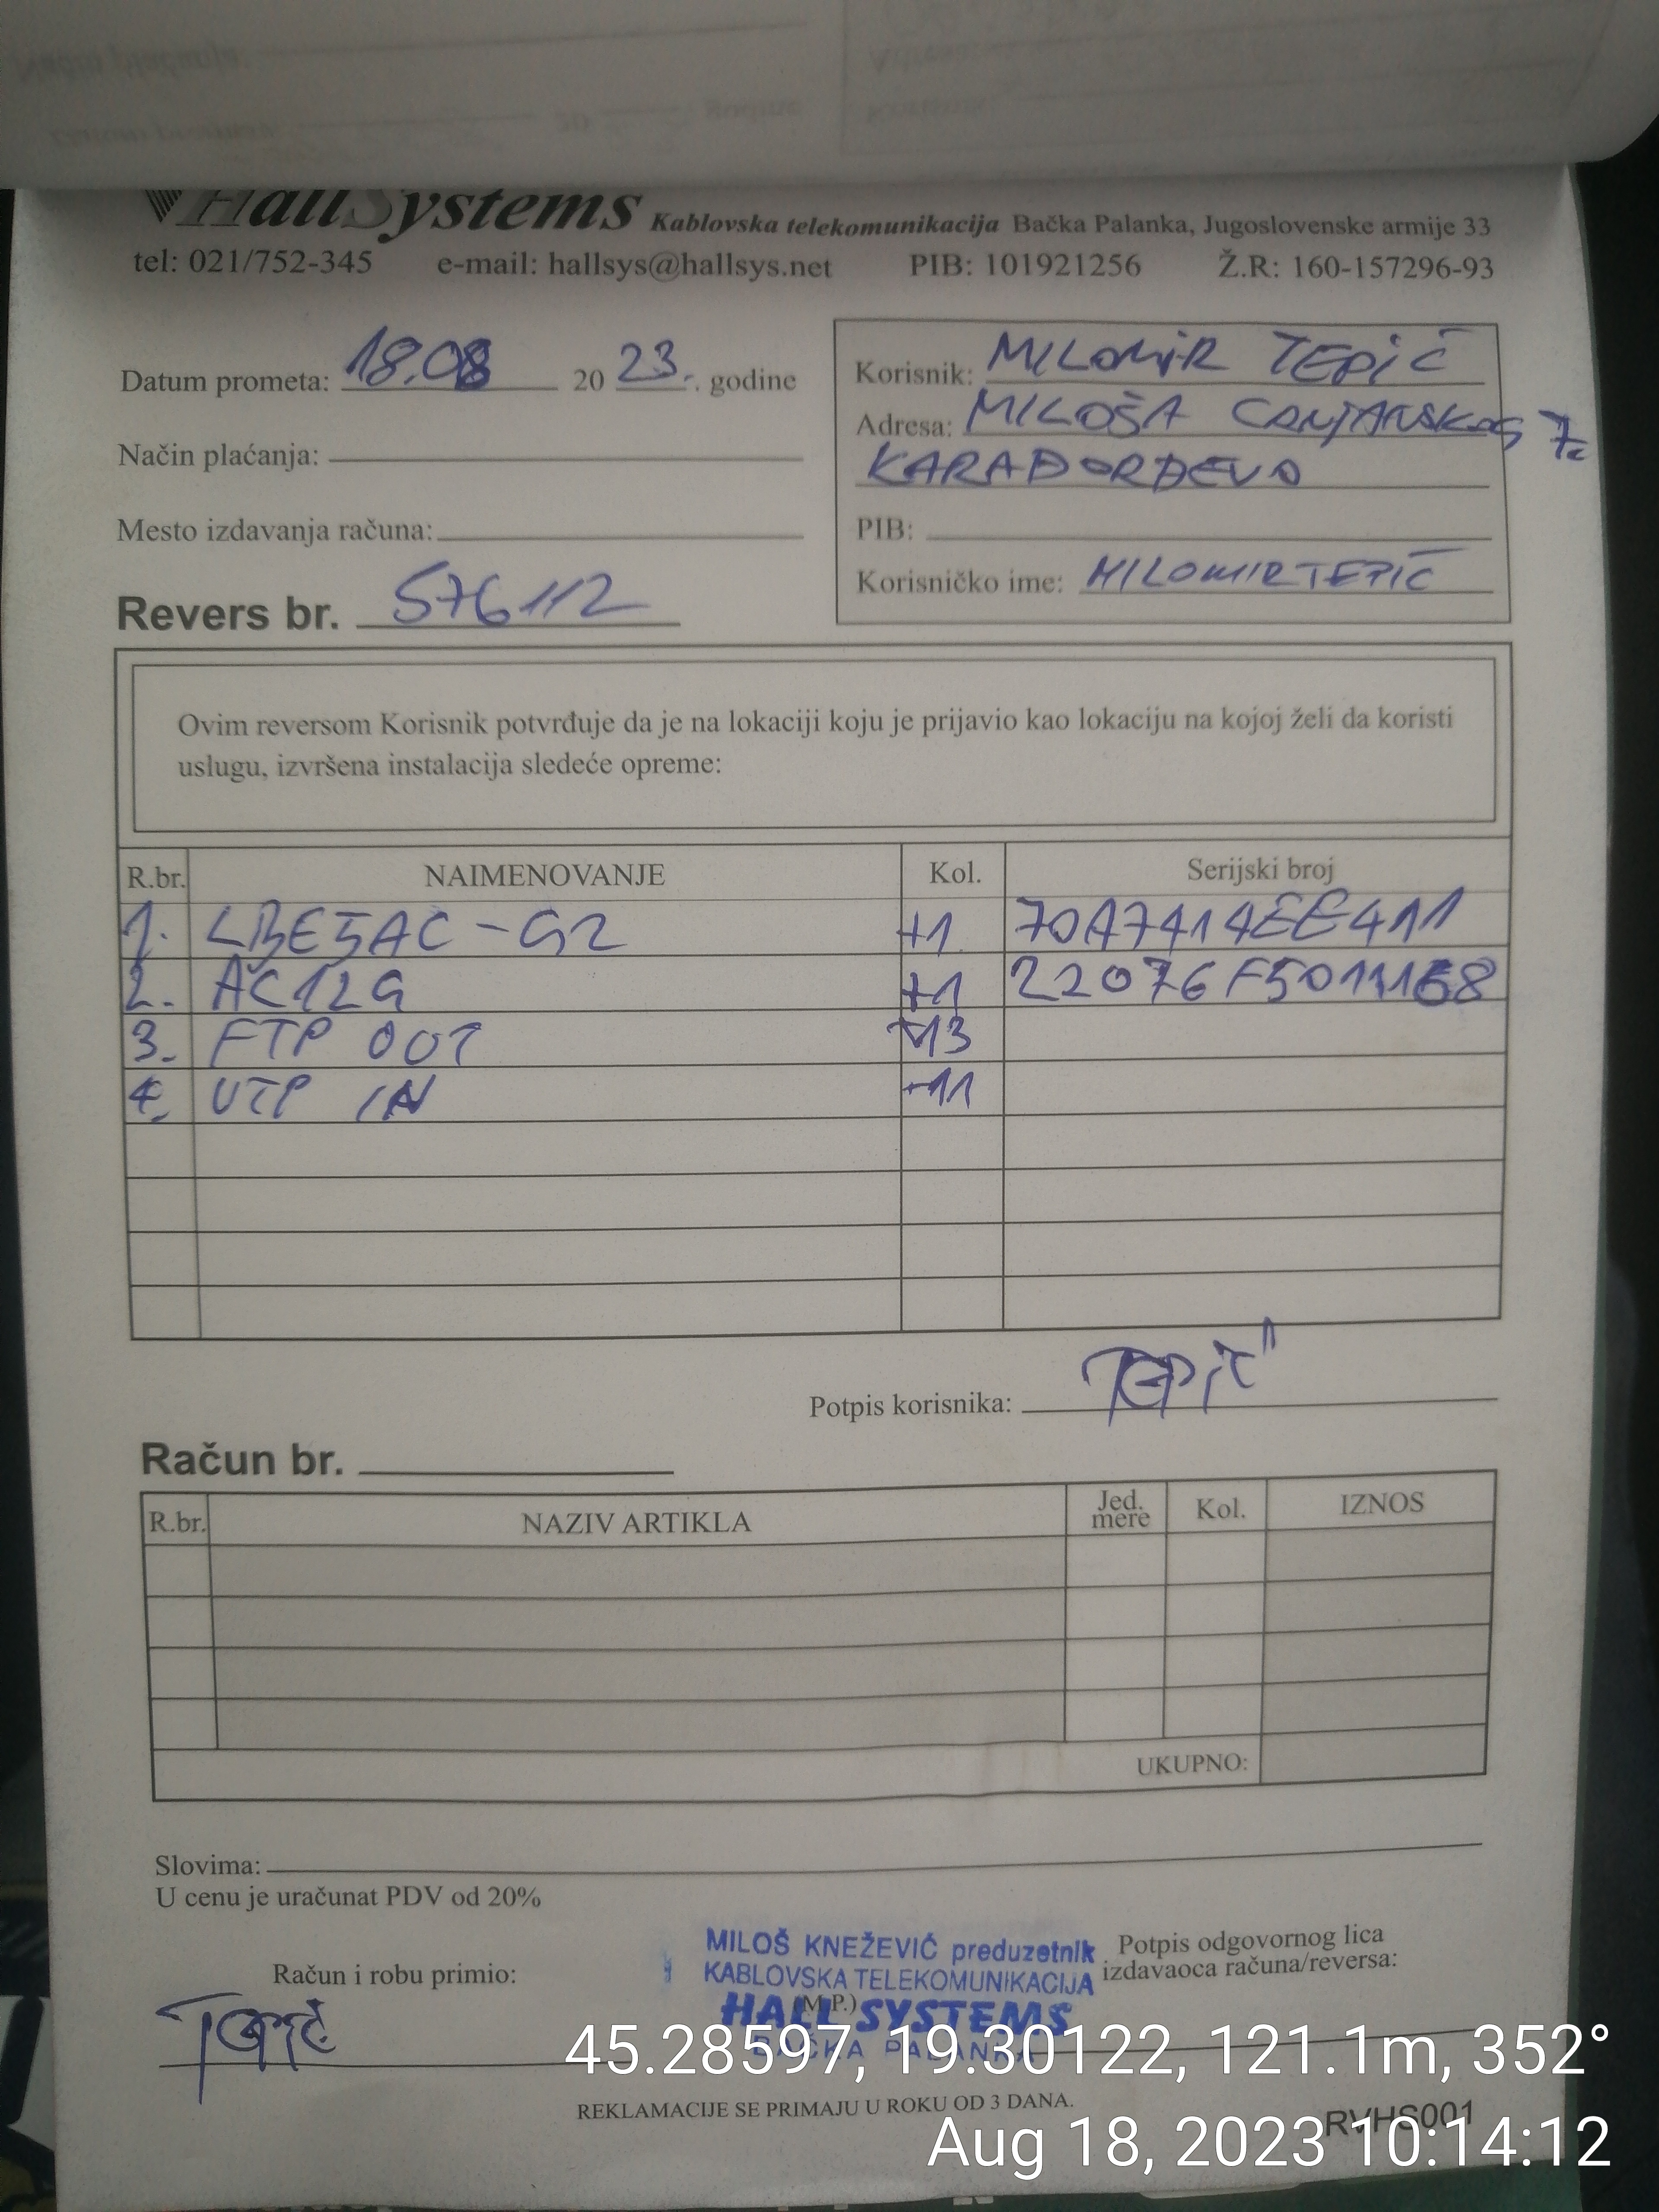 HallSystems Kablovska telekomunikacija Bačka Palanka, Jugoslovenske armije 33
tel: 021/752-345 e-mail: hallsys@hallsys.net PIB: 101921256 Ž.R: 160-157296-93
Datum prometa: 18.08 2023. godine
Način plaćanja:
Mesto izdavanja računa:
Revers br. 576112
Korisnik: MILOMIR TEPIĆ
Adresa: MILOŠA CRNJANSKOG 7
KARAĐORĐEVO
PIB:
Korisničko ime: MILOMIRTEPIĆ
Ovim reversom Korisnik potvrđuje da je na lokaciji koju je prijavio kao lokaciju na kojoj želi da koristi
uslugu, izvršena instalacija sledeće opreme:
R.br. NAIMENOVANJE Kol. Serijski broj
1. LBE5AC-G2 +1 70A7414EE411
2. AC12G +1
3. FTP OUT +13
4. UTP IN +11
Potpis korisnika: TEPIĆ
Račun br.
R.br. NAZIV ARTIKLA Jed. mere Kol. IZNOS
UKUPNO:
Slovima:
U cenu je uračunat PDV od 20%
Račun i robu primio:
TEPIĆ
MILOŠ KNEŽEVIĆ preduzetnik
KABLOVSKA TELEKOMUNIKACIJA
(M.P.)
HALL SYSTEMS
BAČKA PALANKA
Potpis odgovornog lica
izdavaoca računa/reversa:
45.28597, 19.30122, 121.1m, 352°
REKLAMACIJE SE PRIMAJU U ROKU OD 3 DANA.
RVHS001
Aug 18, 2023 10:14:12